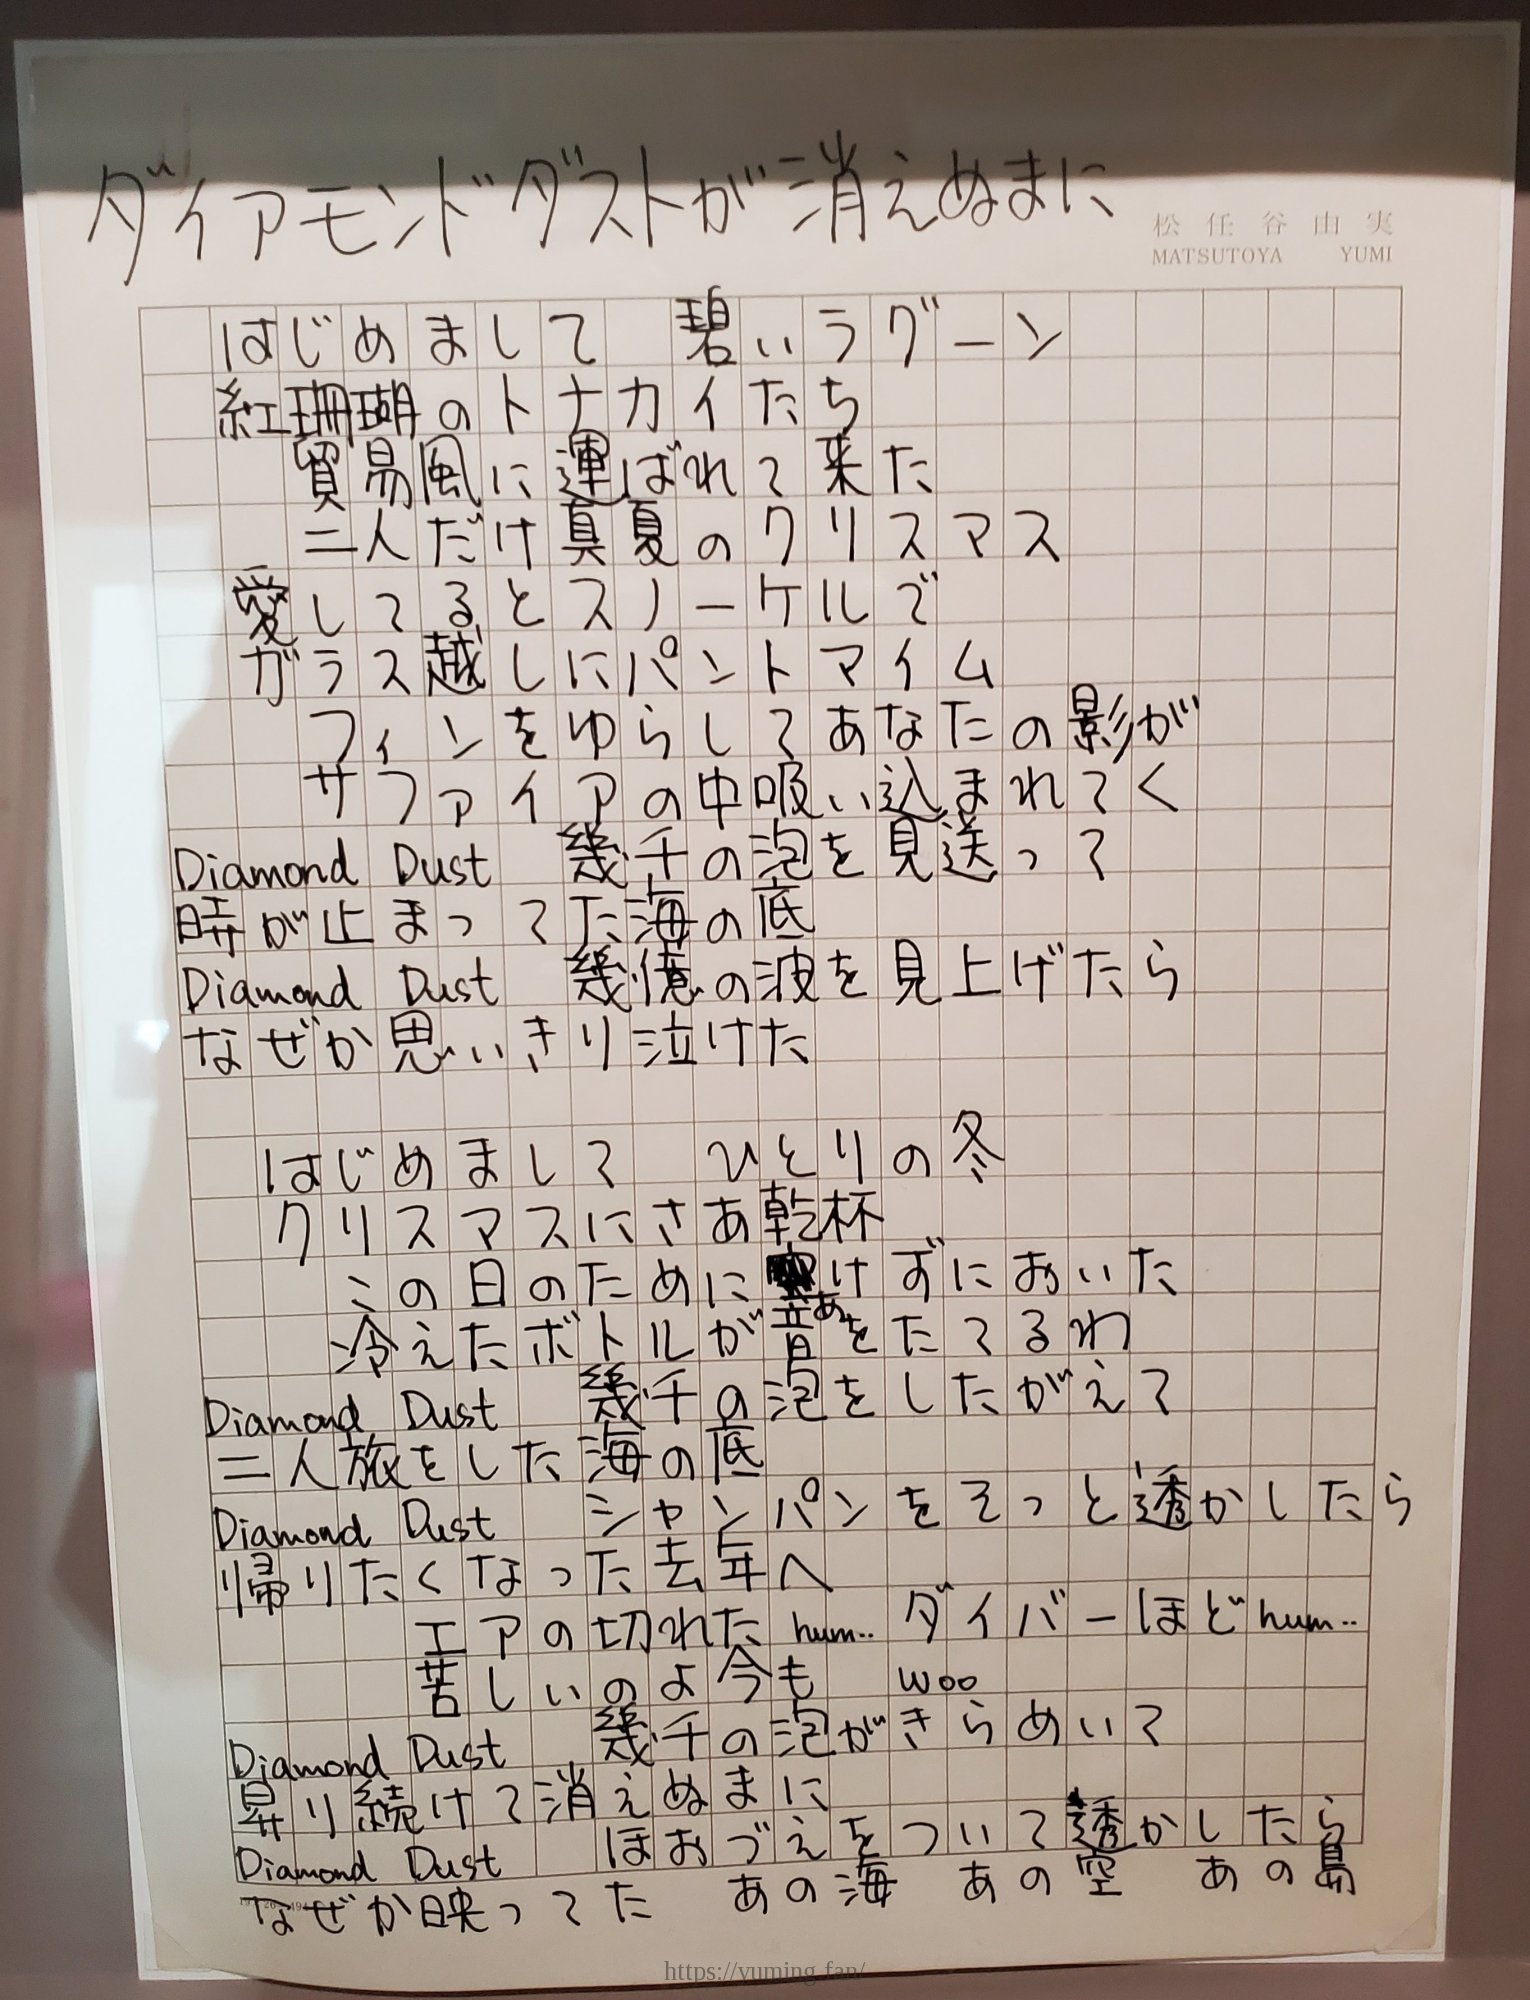 ダイアモンドダストが消えぬまに
松任谷由実
MATSUTOYA YUMI
はじめまして 碧いラグーン
紅珊瑚のトナカイたち
貿易風に運ばれて来た
二人だけ真夏のクリスマス
愛してるとスノーケルで
ガラス越しにパントマイム
フィンをゆらしてあなたの影が
サファイアの中吸い込まれてく
Diamond Dust 幾千の泡を見送って
時が止まってた海の底
Diamond Dust 幾億の波を見上げたら
なぜか思いきり泣けた
はじめまして ひとりの冬
クリスマスにさあ乾杯
この日のためにあけずにおいた
冷えたボトルが音をたてるわ
Diamond Dust 幾千の泡をしたがえて
二人旅をした海の底
Diamond Dust シャンパンをそっと透かしたら
帰りたくなった去年へ
エアの切れた hum‥ ダイバーほど hum‥
苦しいのよ今も woo
Diamond Dust 幾千の泡がきらめいて
昇り続けて消えぬまに
Diamond Dust ほおづえをついて透かしたら
なぜか映ってた あの海 あの空 あの島
https://yuming.fan/